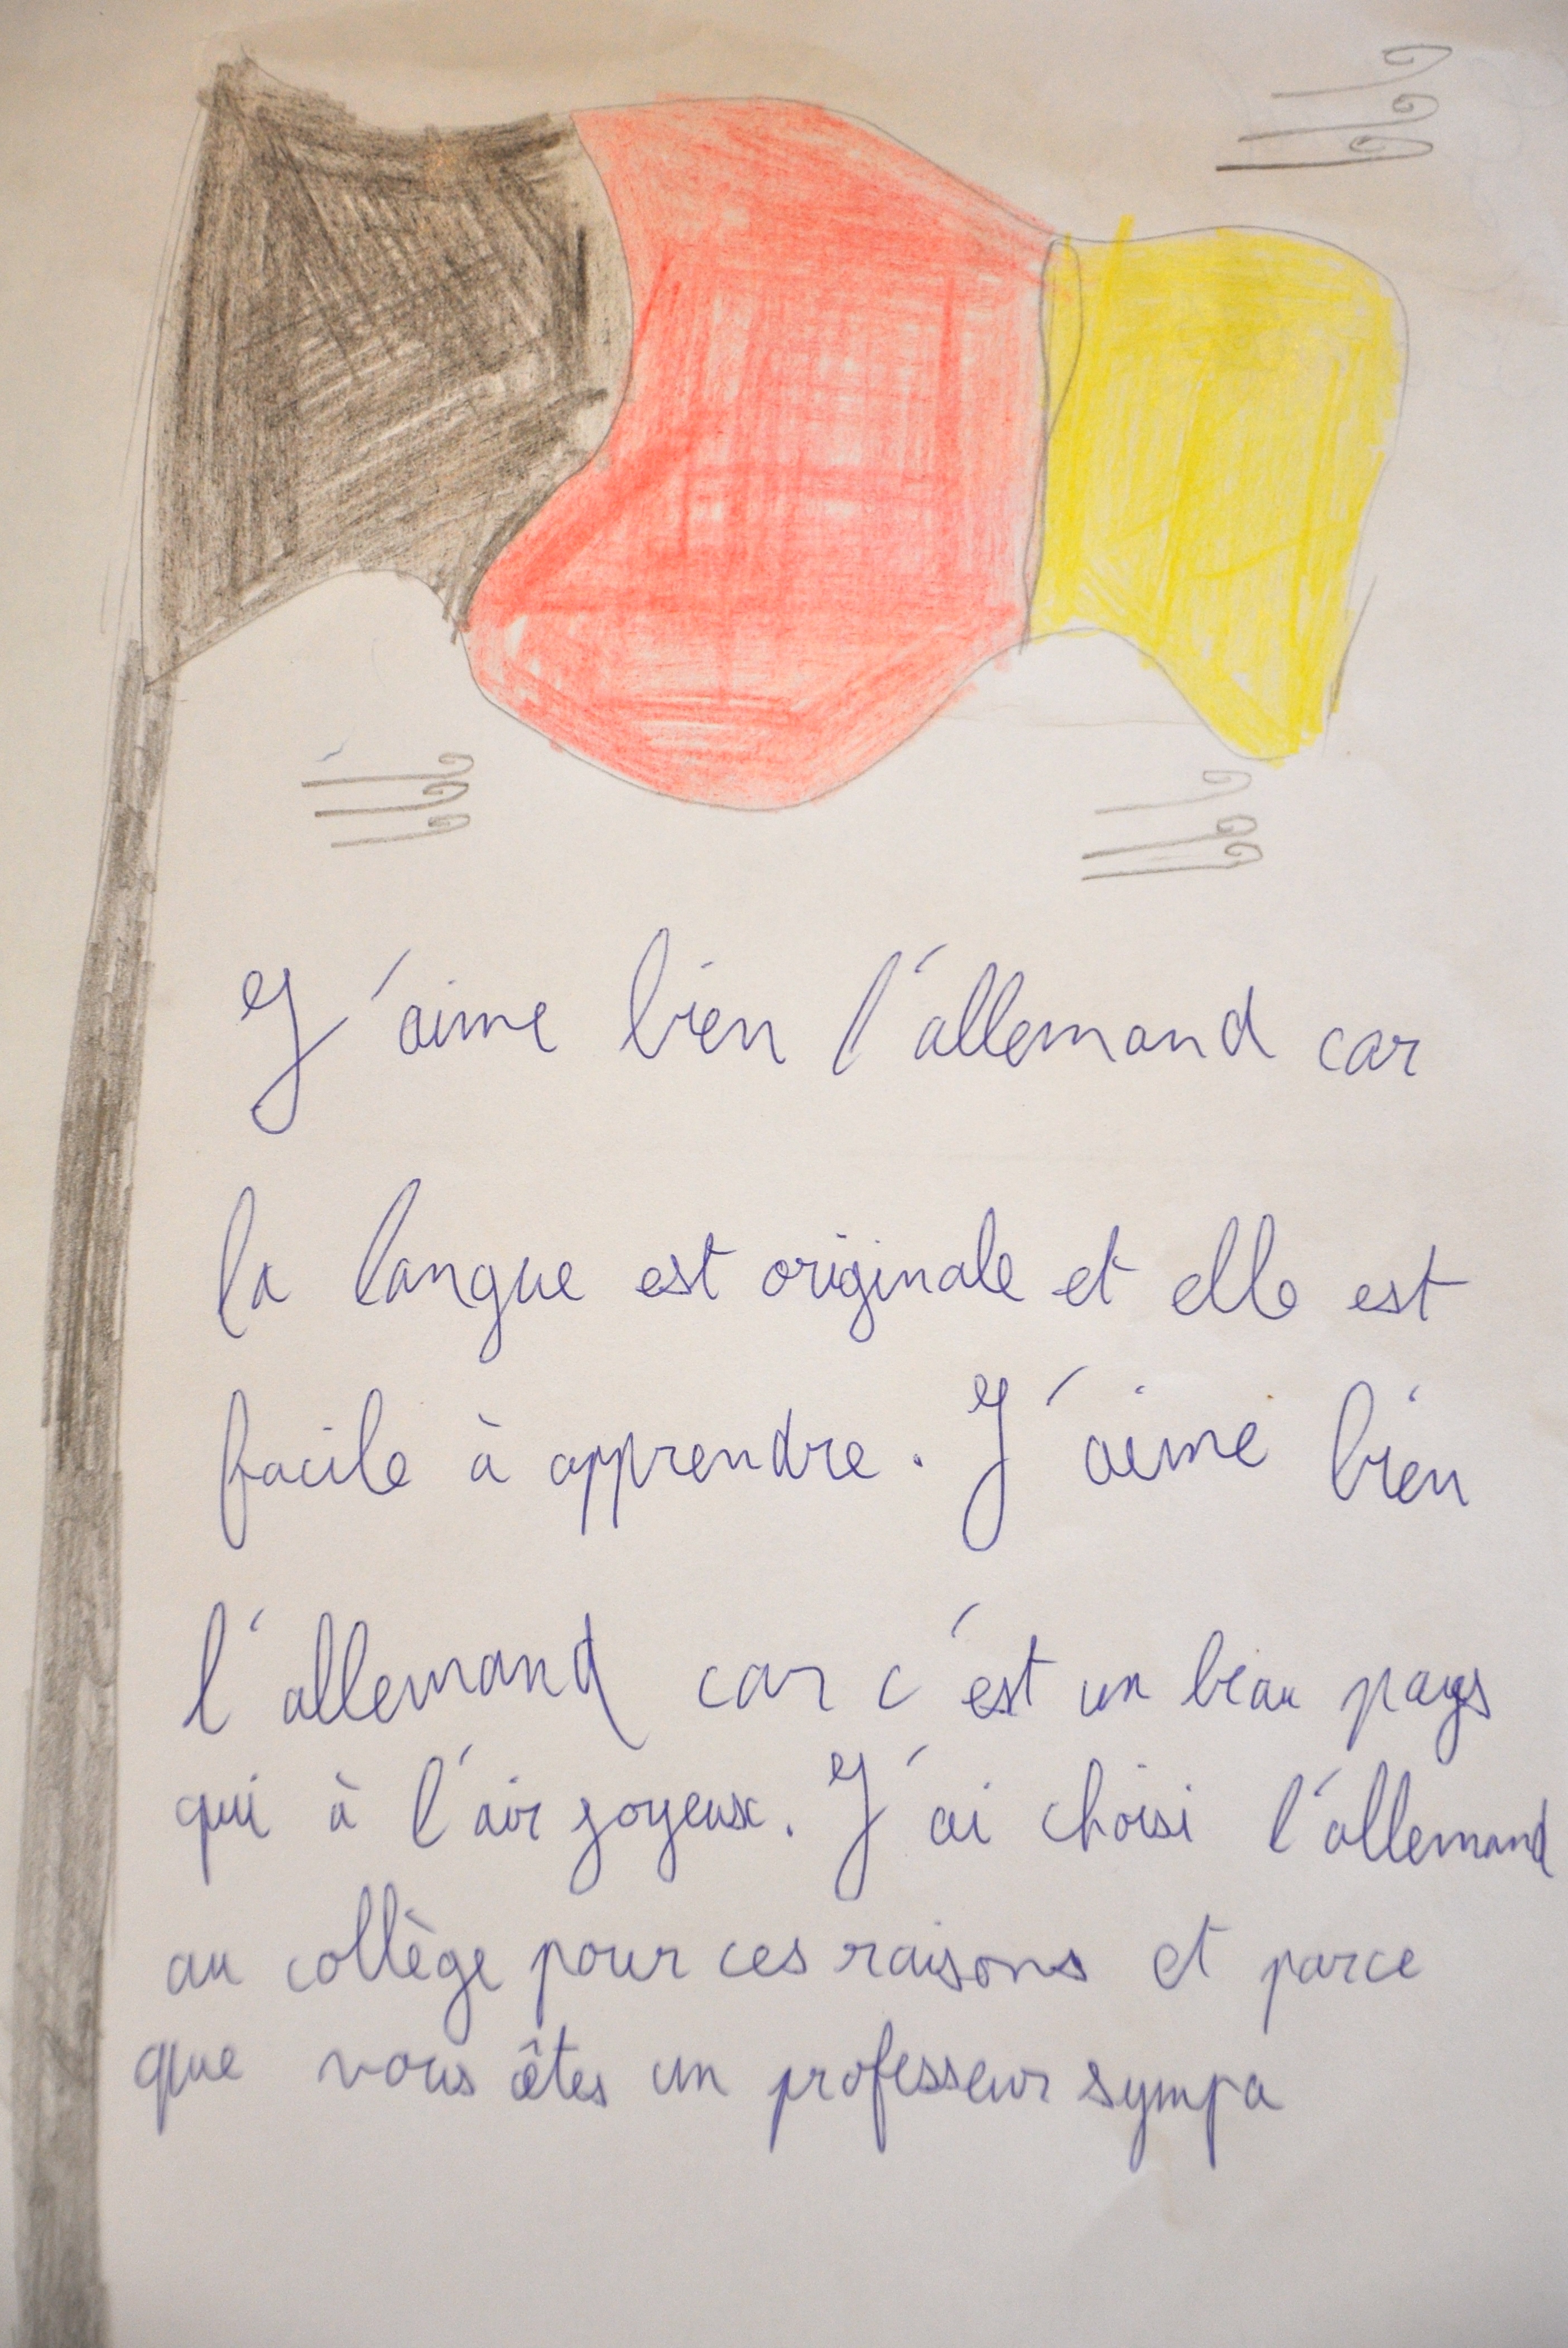 J'aime bien l'allemand car
la langue est originale et elle est
facile à apprendre. J'aime bien
l'allemand car c'est un beau pays
qui à l'air joyeux. J'ai choisi l'allemand
au collège pour ces raisons et parce
que vous êtes un professeur sympa